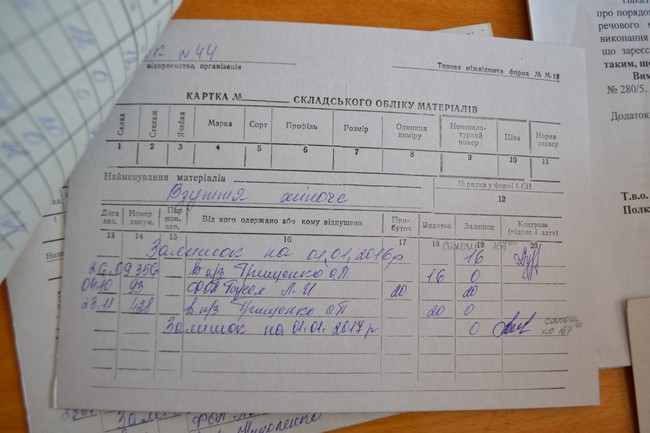 № 44
підприємство, організація
Типова міжвідомча форма № М-12
КАРТКА № СКЛАДСЬКОГО ОБЛІКУ МАТЕРІАЛІВ
Склад Стелаж Ячейка Марка Сорт Профіль Розмір Одиниця виміру Номенкла-турний номер Ціна Норма запасу
1 2 3 4 5 6 7 8 9 10 11
Найменування матеріалів
№ рядка у формі 1-СН
Взуття жіноче
12
Дата зап. Номер докум. Пор. ном. зап. Від кого одержано або кому відпущено При-буток Видаток Залишок Контроль (підпис і дата)
13 14 15 16 17 18 19 20
Залишок на 01.01.2016 р 16
26.09 356 в п/з Грищенко ОП 16 0
04.10 93 ФОП 20 20
23.11 428 в п/з Грищенко ОП 20 0
Залишок на 01.01.2017 р 0
по 167
про порядок
речового
виконання
що зареєс
таким, що
Вим
№ 280/5.
Додаток
Т.в.о.
Полк